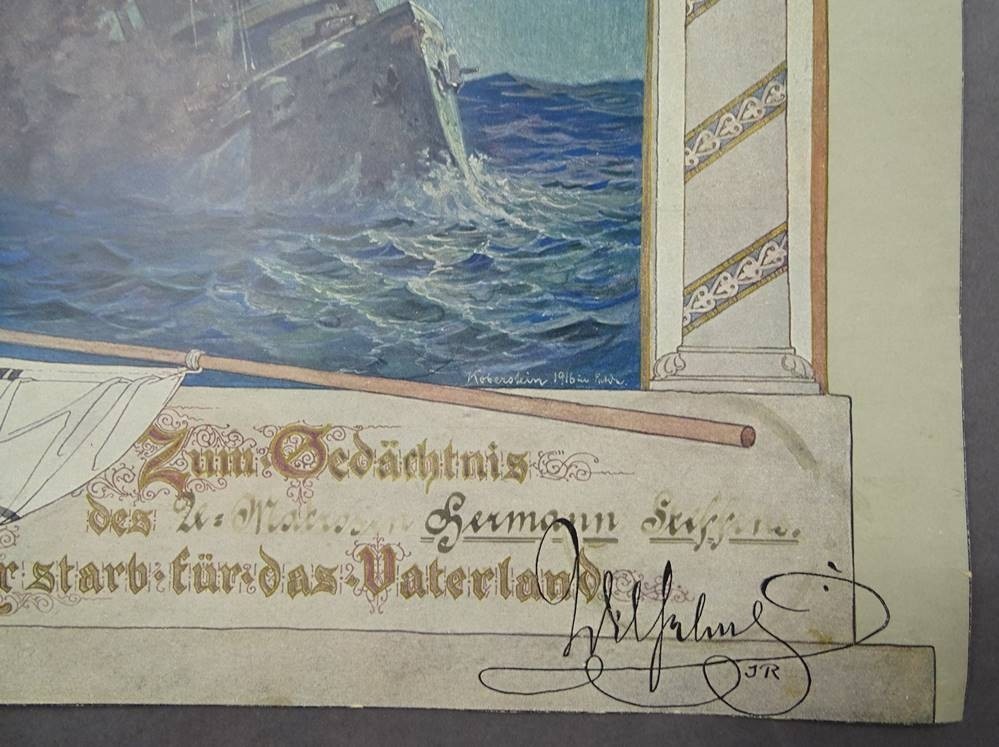 Koberstein 1916
Zum Gedächtnis
des Hermann
r starb für das Vaterland
Wilhelm
IR